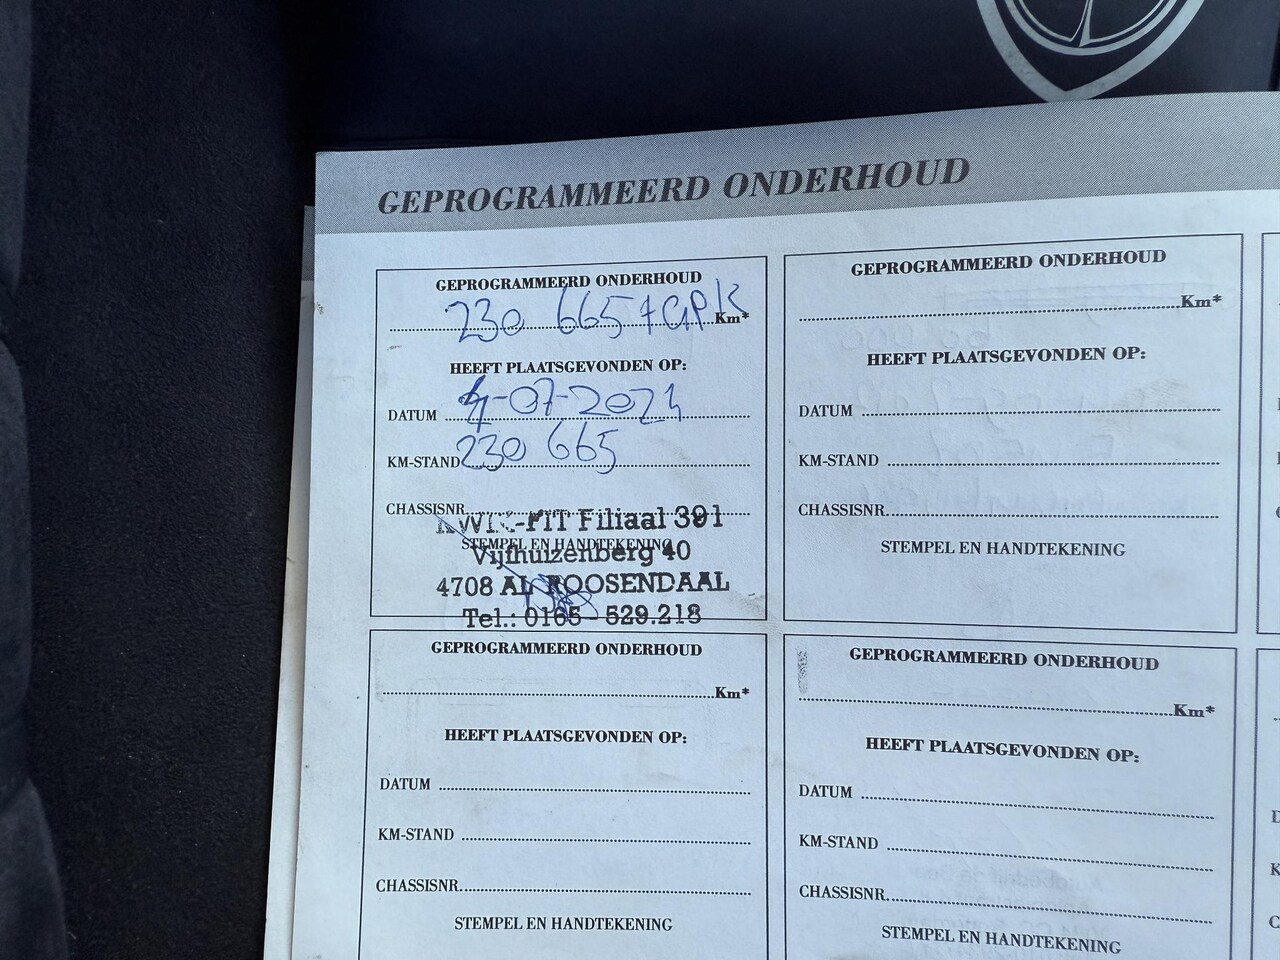 GEPROGRAMMEERD ONDERHOUD
GEPROGRAMMEERD ONDERHOUD
230 665 Km*
HEEFT PLAATSGEVONDEN OP:
DATUM 4-07-2024
KM-STAND 230 665
CHASSISNR.
KWIK-FIT Filiaal 391
STEMPEL EN HANDTEKENING
Vijfhuizenberg 40
4708 AL ROOSENDAAL
Tel.: 0165 - 529.218
GEPROGRAMMEERD ONDERHOUD
Km*
HEEFT PLAATSGEVONDEN OP:
DATUM
KM-STAND
CHASSISNR.
STEMPEL EN HANDTEKENING
GEPROGRAMMEERD ONDERHOUD
Km*
HEEFT PLAATSGEVONDEN OP:
DATUM
KM-STAND
CHASSISNR.
STEMPEL EN HANDTEKENING
GEPROGRAMMEERD ONDERHOUD
Km*
HEEFT PLAATSGEVONDEN OP:
DATUM
KM-STAND
CHASSISNR.
STEMPEL EN HANDTEKENING